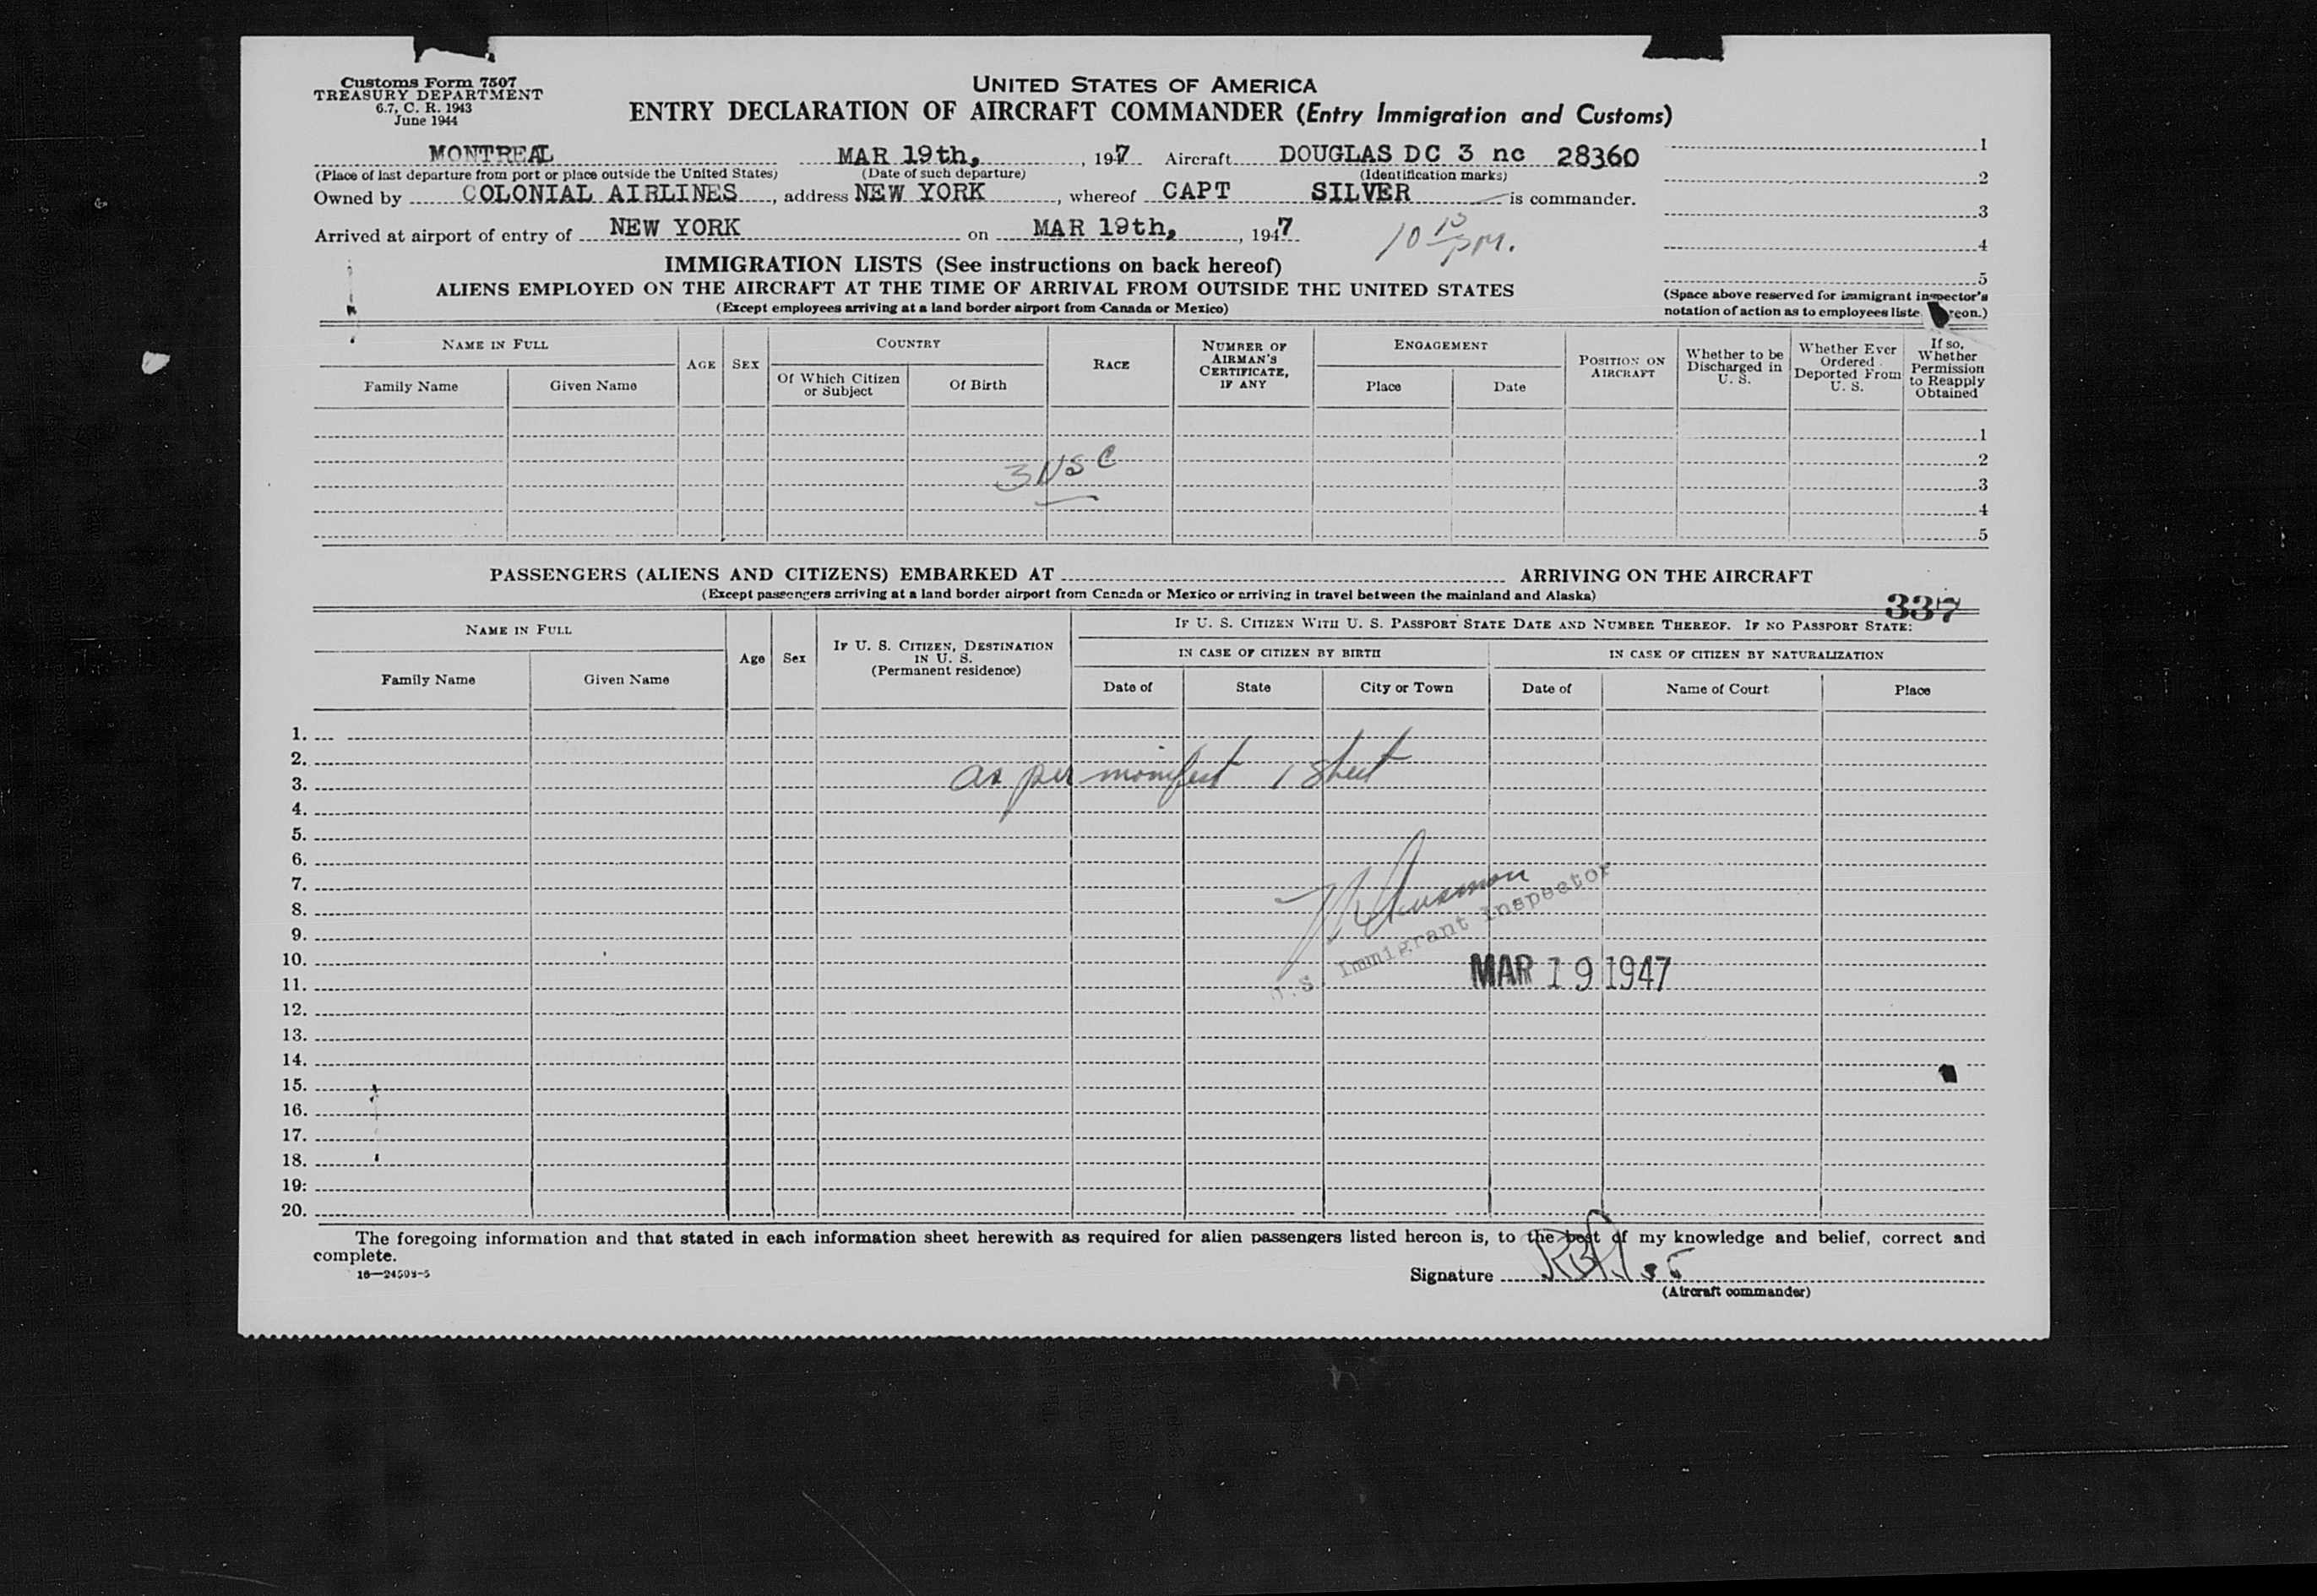 Customs Form 7507
TREASURY DEPARTMENT
6.7, C. R. 1943
June 1944
UNITED STATES OF AMERICA
ENTRY DECLARATION OF AIRCRAFT COMMANDER (Entry Immigration and Customs)
MONTREAL MAR 19th, , 1947 Aircraft DOUGLAS DC 3 nc 28360
(Place of last departure from port or place outside the United States) (Date of such departure) (Identification marks)
Owned by COLONIAL AIRLINES, address NEW YORK, whereof CAPT SILVER is commander.
Arrived at airport of entry of NEW YORK on MAR 19th, , 1947
10 10 PM.
1
2
3
4
5
(Space above reserved for immigrant inspector's
notation of action as to employees liste reon.)
IMMIGRATION LISTS (See instructions on back hereof)
ALIENS EMPLOYED ON THE AIRCRAFT AT THE TIME OF ARRIVAL FROM OUTSIDE THE UNITED STATES
(Except employees arriving at a land border airport from Canada or Mexico)
NAME IN FULL
Family Name
Given Name
AGE
SEX
COUNTRY
Of Which Citizen
or Subject
Of Birth
RACE
NUMBER OF
AIRMAN'S
CERTIFICATE,
IF ANY
ENGAGEMENT
Place
Date
POSITION ON
AIRCRAFT
Whether to be
Discharged in
U. S.
Whether Ever
Ordered
Deported From
U. S.
If so,
Whether
Permission
to Reapply
Obtained
1
2
3
4
5
3 USC
PASSENGERS (ALIENS AND CITIZENS) EMBARKED AT ARRIVING ON THE AIRCRAFT
(Except passengers arriving at a land border airport from Canada or Mexico or arriving in travel between the mainland and Alaska)
337
NAME IN FULL
Family Name
Given Name
Age
Sex
IF U. S. CITIZEN, DESTINATION
IN U. S.
(Permanent residence)
IF U. S. CITIZEN WITH U. S. PASSPORT STATE DATE AND NUMBER THEREOF. IF NO PASSPORT STATE:
IN CASE OF CITIZEN BY BIRTH
IN CASE OF CITIZEN BY NATURALIZATION
Date of
State
City or Town
Date of
Name of Court
Place
1.
2.
3.
4.
5.
6.
7.
8.
9.
10.
11.
12.
13.
14.
15.
16.
17.
18.
19.
20.
as per manifest 1 sheet
U.S. Immigrant Inspector
MAR 19 1947
The foregoing information and that stated in each information sheet herewith as required for alien passengers listed hereon is, to the best of my knowledge and belief, correct and
complete.
16—24598-5
Signature
(Aircraft commander)